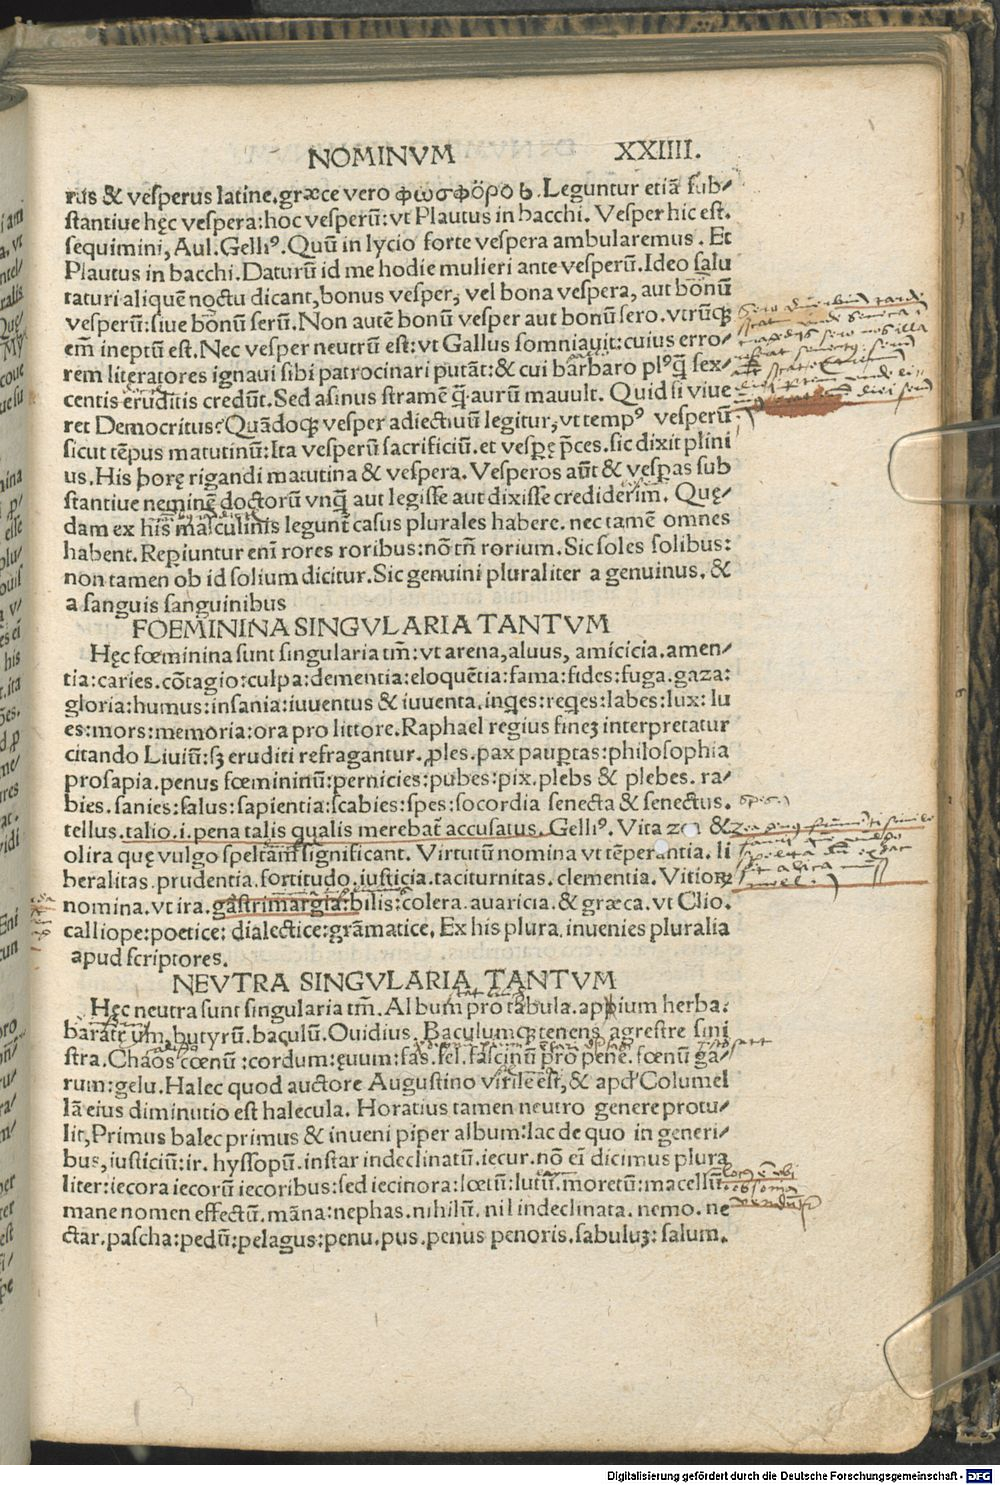 NOMINVM XXIIII.
rus & vesperus latine.græce vero φωσφόρο ϐ.Leguntur etiā sub⸗
stantiue hęc vespera:hoc vesperū:vt Plautus in bacchi. Vesper hic est.
sequimini, Aul.Gelliꝰ.Quū in lycio forte vespera ambularemus. Et
Plautus in bacchi.Daturū id me hodie mulieri ante vesperū.Ideo salu
taturi aliquē noctu dicant,bonus vesper, vel bona vespera, aut bonū
vesperū:siue bonū serū.Non autē bonū vesper aut bonū sero.vtrūqꝫ
em̄ ineptū est.Nec vesper neutrū est:vt Gallus somniauit:cuius erro⸗
rem literatores ignaui sibi patrocinari putāt:& cui barbaro plꝰ q̄ sex⸗
centis eruditis credūt.Sed asinus stramē q̄ aurū mauult. Quid si viue
ret Democritus?Quādoqꝫ vesper adiectiuū legitur,vt tempꝰ vesperū
sicut tēpus matutinū:Ita vesperū sacrificiū.et vespę p̄ces.sic dixit plini
us.His horę rigandi matutina & vespera.Vesperos aūt & vesꝑas sub
stantiue neminē doctorū vnq̄ aut legisse aut dixisse crediderim. Quę⸗
dam ex his masculinis legunt̄ casus plurales habere. nec tamē omnes
habent.Reꝑiuntur eni rores roribus:nō tn̄ rorium.Sic soles solibus:
non tamen ob id solium dicitur.Sic genuini pluraliter a genuinus. &
a sanguis sanguinibus
FOEMININA SINGVLARIA TANTVM
Hęc fœminina sunt singularia tm̄:vt arena,aluus, amicicia.amen⸗
tia:caries.cōtagio:culpa:dementia:eloquētia:fama:fides:fuga.gaza:
gloria:humus:insania:iuuentus & iuuenta.inqes:reqes:labes:lux: lu
es:mors:memoria:ora pro littore.Raphael regius fineꝫ interpretatur
citando Liuiū:sꝫ eruditi refragantur.ꝓles.pax pauꝑtas:philosophia
prosapia.penus fœmininū:pernicies:pubes:pix.plebs & plebes. ra⸗
bies.sanies:salus:sapientia:scabies:spes:socordia senecta & senectus.
tellus.talio.i.pena talis qualis merebat̄ accusatus. Gelliꝰ. Vita &
olira quę vulgo speltam significant. Virtutū nomina vt tēperantia. li
beralitas.prudentia.fortitudo.iusticia.taciturnitas.clementia.Vitioꝝ
nomina.vt ira.gastrimargia:bilis:colera.auaricia.& græca.vt Clio.
calliope:poetice: dialectice:grāmatice. Ex his plura.inuenies pluralia
apud scriptores.
NEVTRA SINGVLARIA TANTVM
Hęc neutra sunt singularia tm̄.Album pro tabula.appium herba:
baratrum,butyrū.baculū.Ouidius. Baculumqꝫ tenens agrestre sini
stra.Chaos cœnū:cordum:ęuum:fas.fel.fascinū pro pene.fœnū ga⸗
rum:gelu.Halec quod auctore Augustino virile est,& apd' Columel
lā eius diminutio est halecula. Horatius tamen neutro genere protu⸗
lit,Primus halec primus & inueni piper album:lac de quo in generi⸗
bus,iusticiū:ir. hyssopū.instar indeclinatū.iecur.nō ei dicimus plura
liter:iecora iecorū iecoribus:sed iecinora:lœtū:lutū.moretū:macellū
mane nomen effectū.māna:nephas.nihilū.nil indeclinata.nemo.ne
ctar.pascha:pedū:pelagus:penu.pus.penus penoris.sabuluꝫ:salum.
Digitalisierung gefördert durch die Deutsche Forschungsgemeinschaft - DFG